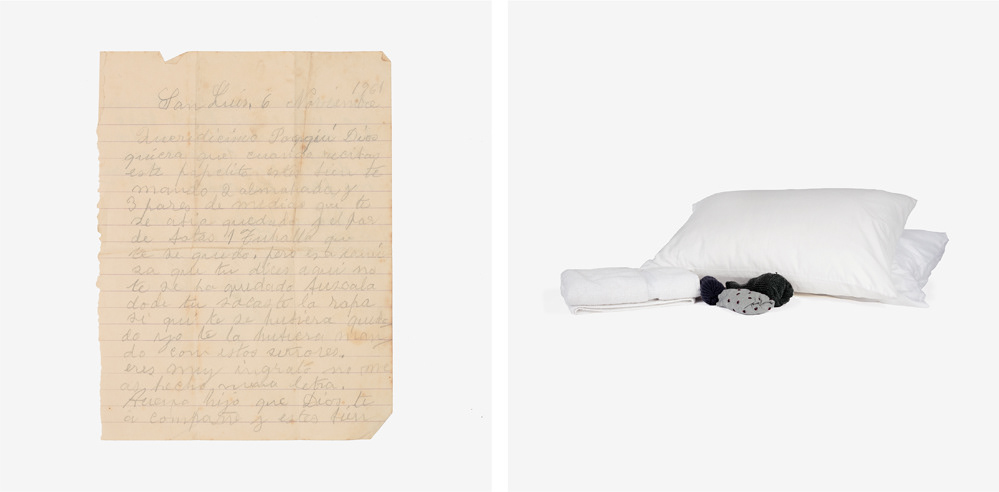 1961
San Luis, 6 Noviembre
Queridicimo Paqqui Dios
quiera que cuando recibas
este papelito estes bien te
mando 2 almohada y
3 pares de medias que te
se abia quedado y el par
de botas 1 Tuhalla que
te se quedo, pero esa cami
sa que tu dices aqui no
te se ha quedado buscala
dode tu sacaste la ropa
si qui te se hubiera queda
do ijo te la hubiera man
do con estos señores.
eres muy ingrato no me
as hecho nunca letra.
Bueno hijo que Dios te
a compañe y estes bien